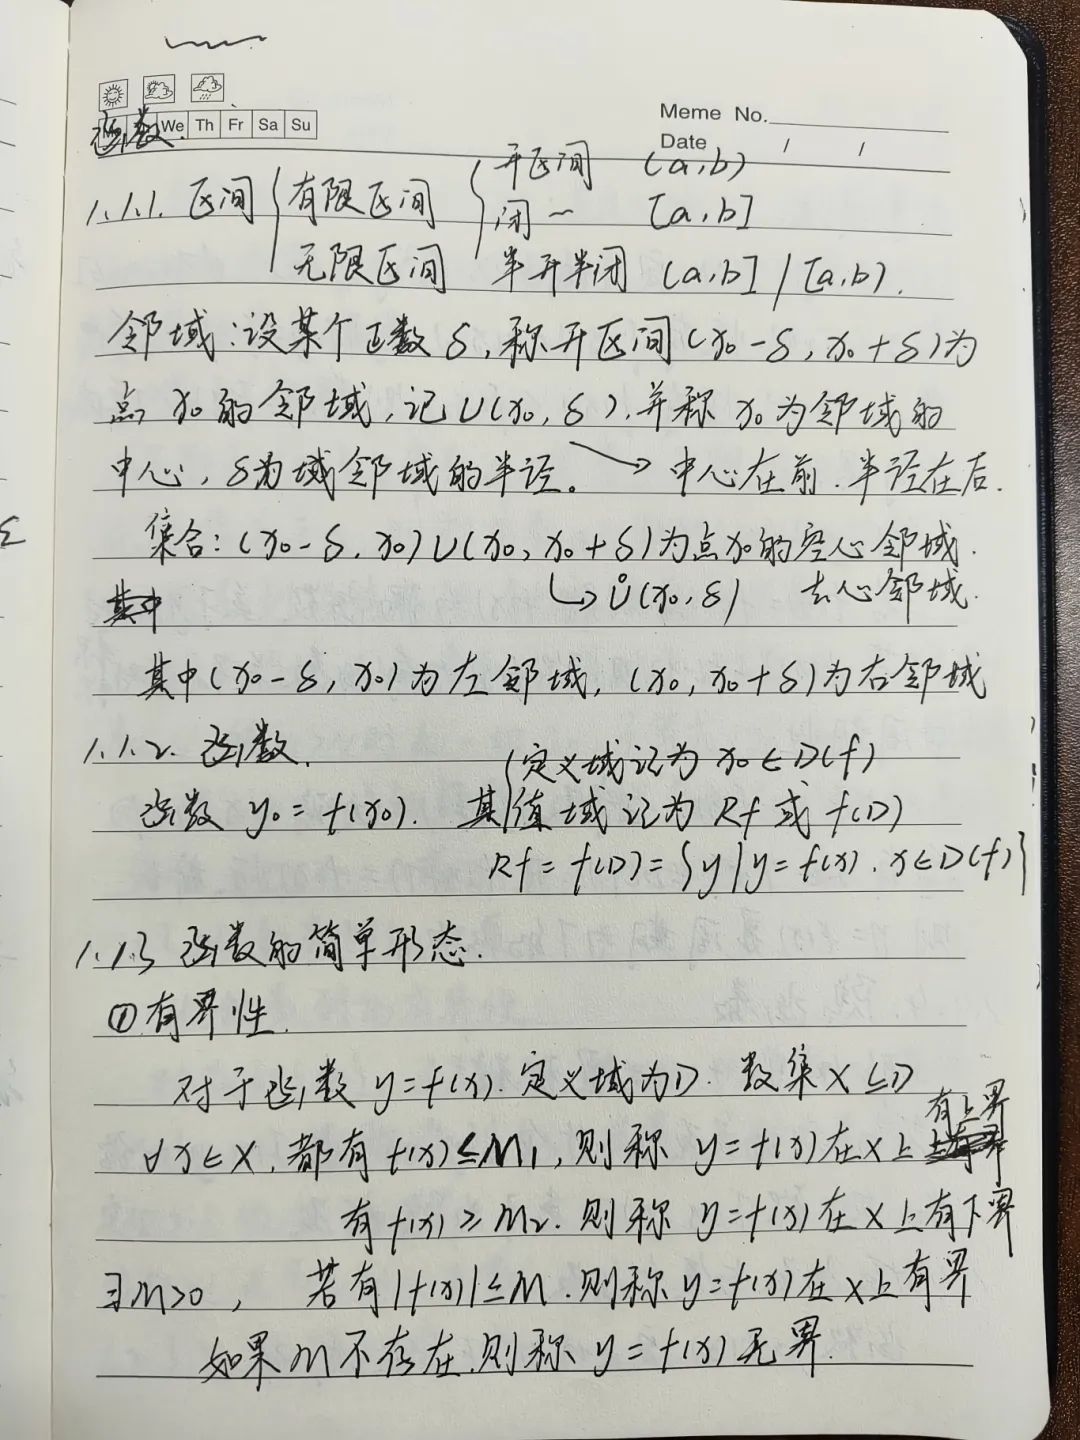 We Th Fr Sa Su
Meme No.
Date / /
函数.
1.1.1. 区间 { 有限区间 { 开区间 (a,b)
闭~ [a,b]
无限区间 半开半闭 (a,b] / [a,b).
邻域:设某个正数δ,称开区间(x₀-δ, x₀+δ)为
点x₀的邻域,记U(x₀,δ),并称x₀为邻域的
中心,δ为域邻域的半径。 → 中心在前.半径在后.
集合:(x₀-δ,x₀)∪(x₀,x₀+δ)为点x₀的空心邻域.
其中 ↳ Ů(x₀,δ) 去心邻域.
其中(x₀-δ,x₀)为左邻域,(x₀,x₀+δ)为右邻域
1.1.2. 函数.
{定义域记为x₀∈D(f)
函数 y₀=f(x₀). 其 值域记为Rf或f(D)
Rf=f(D)={y|y=f(x).x∈D(f)}
1.1.3 函数的简单形态.
①有界性.
对于函数y=f(x).定义域为D. 数集X⊆D
有上界
∀x∈X,都有f(x)≤M₁,则称y=f(x)在X上
有f(x)≥M₂.则称y=f(x)在X上有下界
∃M>0, 若有|f(x)|≤M.则称y=f(x)在X上有界
如果M不存在,则称y=f(x)无界.